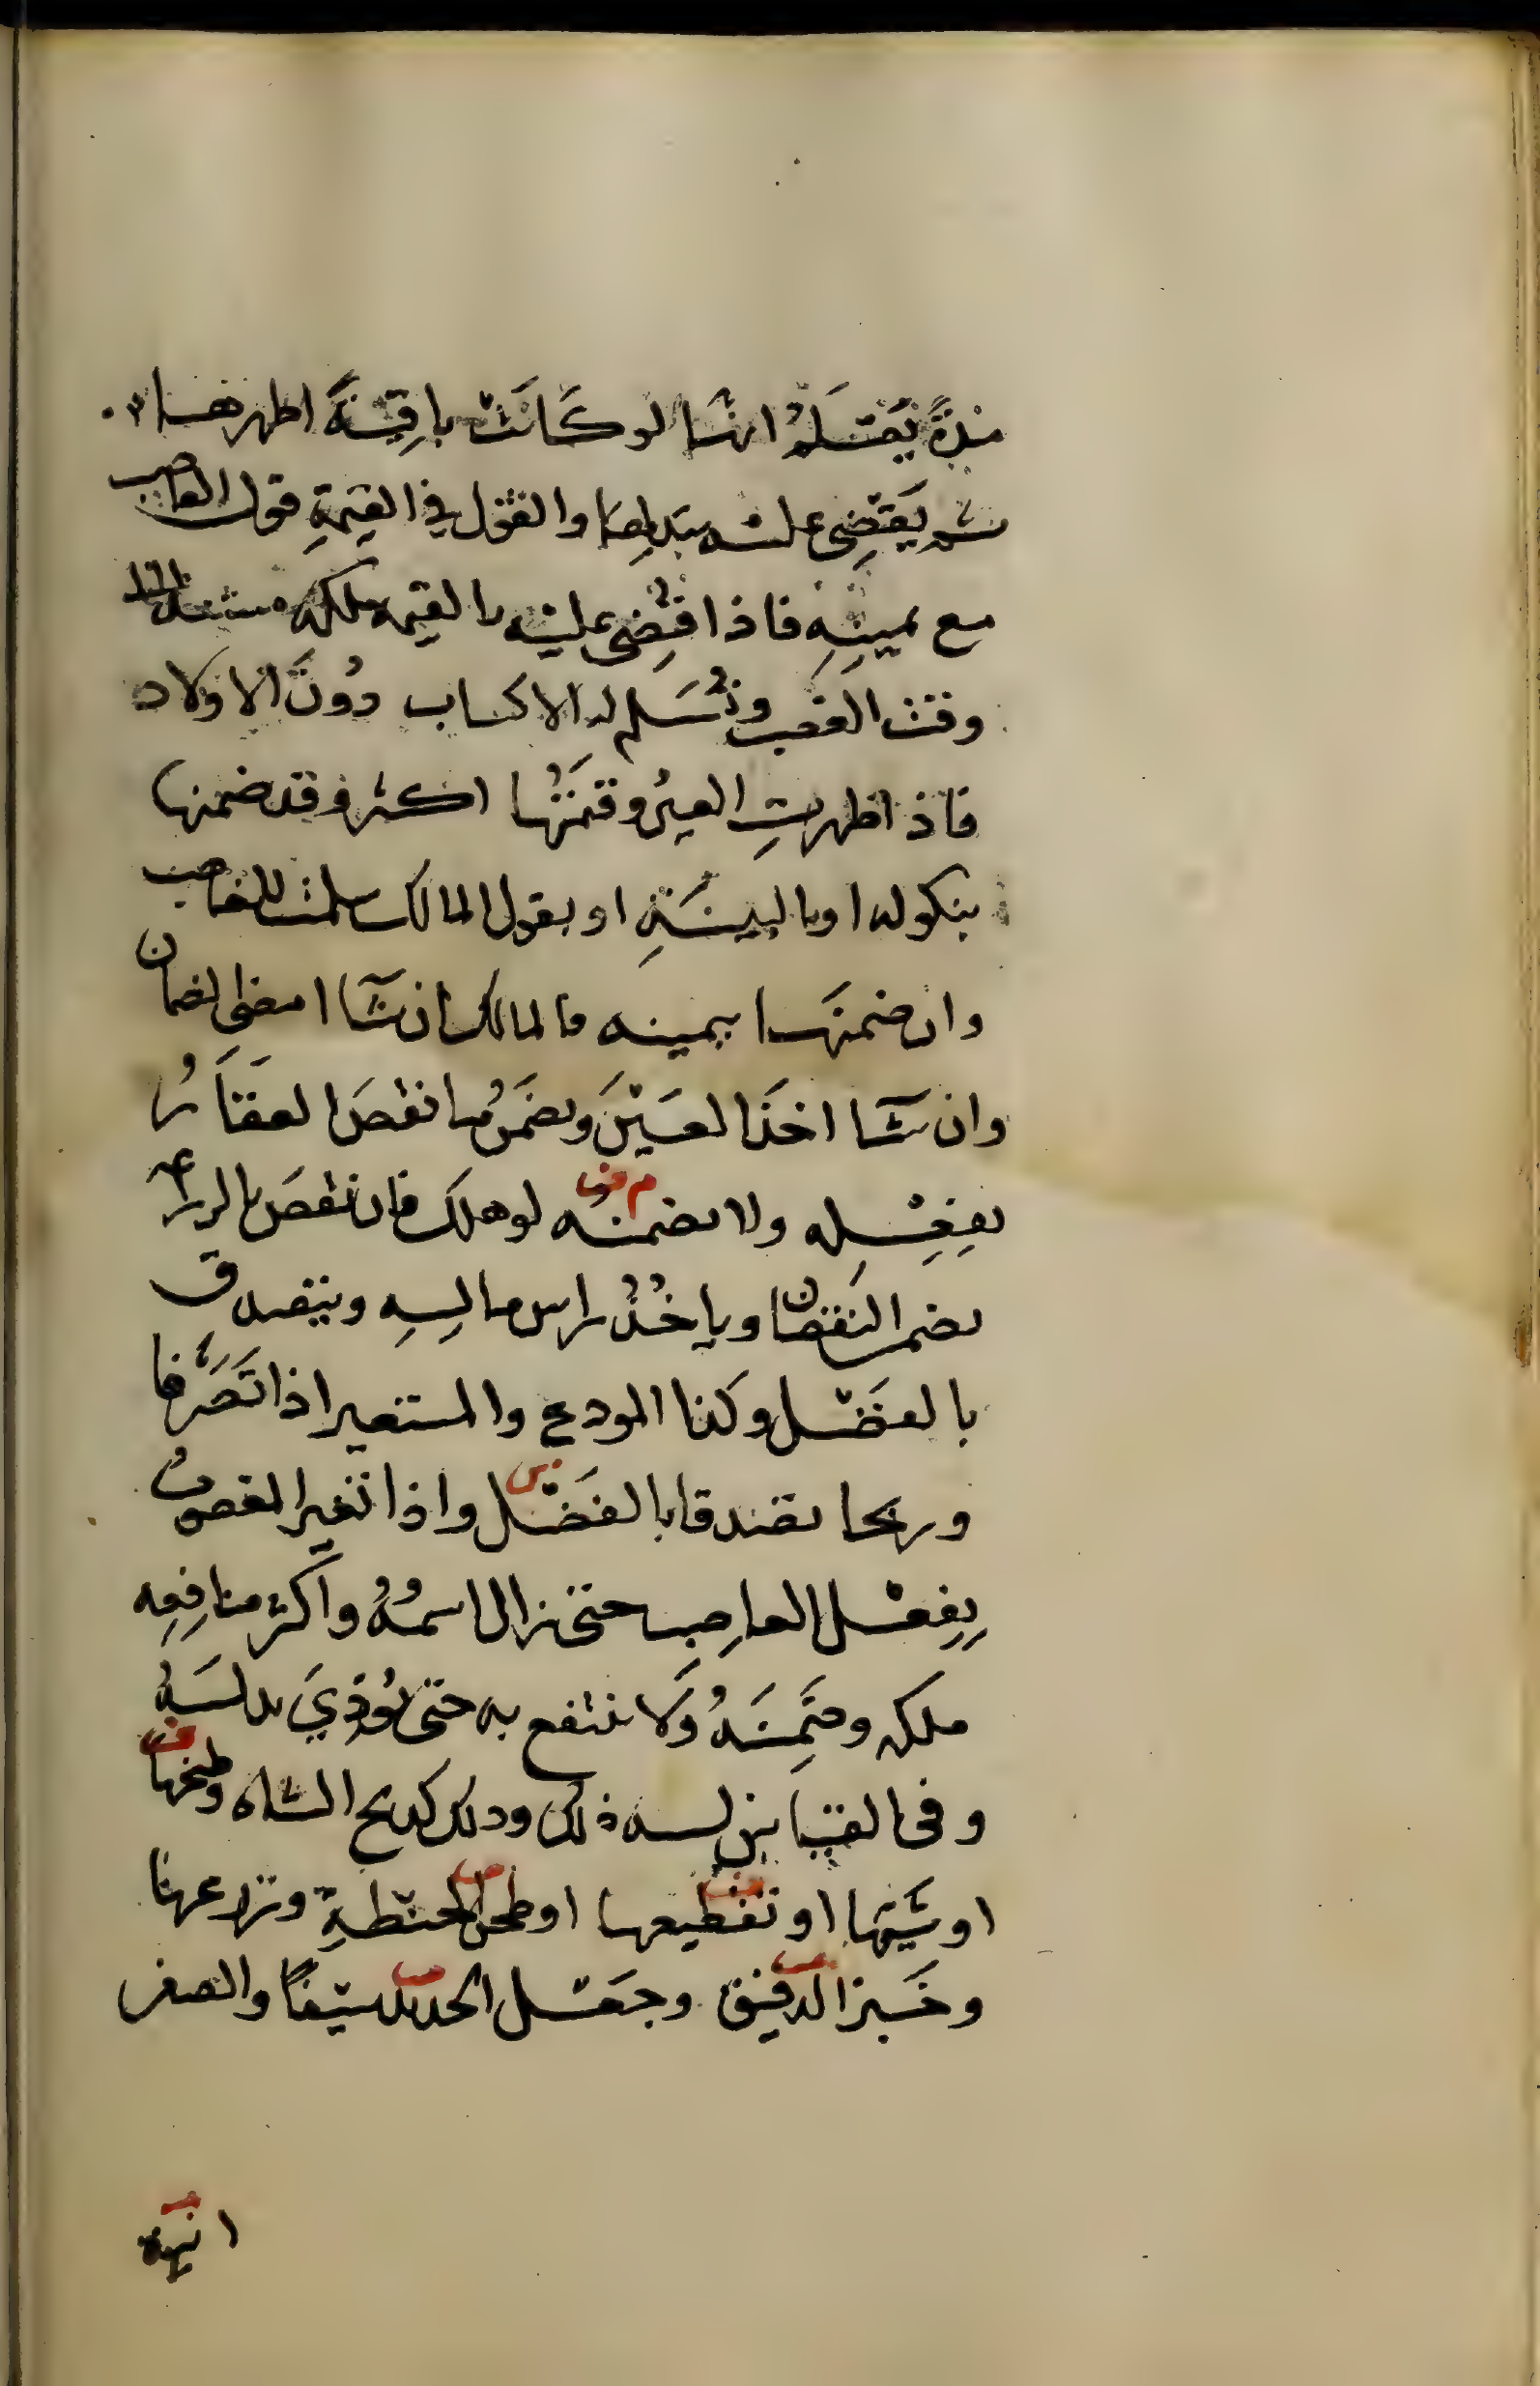 مدةً يَعْلَمُ انها لو كَانَتْ باقِيَةً اظهرها
ثم يَقْضِي عليه ببدلها والقول في القِيمَةِ قول الغاصب
مع يمينِهِ فاذا قُضِيَ عليه بالقيمة ملكه مستندا الى
وقت الغصب وتُسَلم له الاكساب دُونَ الاولاد
فاذا ظهرتِ العينُ وقيمَتُها اكثر وقد ضمنها
بنكوله او بالبينَةِ او بقول المالك سلمت للغاصب
وان ضمنها بيمينه فالمالك ان شآ امضى الضمان
وان شآ اخذ العَيْنَ ويضمَنُ ما نقصَ العقارُ
بفِعْلِه ولا يضمنُه م ف لو هلك فان نقصَ بالزراعة
يضمن النقصان وياخُذُ راس مالِهِ ويتصدق
بالفَضْل وكذا المودع والمستعير اذا تَصَرَّفا
وربحا تصدقا بالفَضْل س واذا تغير المغصوبُ
بِفِعْل الغاصِبِ حتى زال اسمُهُ واكثر منافِعِه
ملكه وضَمِنَهُ وَلا ينتفع به حتى يُؤدِّيَ بدلَهُ
وفى القياس له ذلك وذلك كذبح الشاه وطبخها ف
او شَيِّها او تقطيعها ف او طحن الحنْطةِ ف او زرعها
وخَبز الدقيق ف وجَعْل الحديد ف سَيْفًا والصفر
انية ف